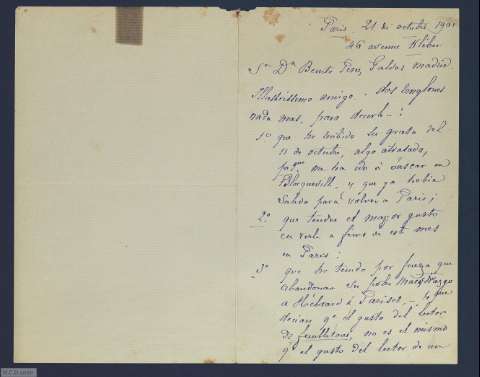 Paris 21 de octubre 1901
46 avenue Kléber
Sr Dn Benito Perez Galdos Madrid
Illustrissimo amigo. Dos renglones
nada mas, para decirle:
1º que he recibido su grata del
11 de octubre, algo atrasada,
me ha ido á buscar en
y que ya habia
salido para volver a Paris;
2º que tendré el mayor gusto
en verle a fines de este mes
en Paris;
3º que he tenido por fuerza que
abandonar su pobre Maestrazgo
a Hébrard
que el gusto del lector
de feuilletons, no es el mismo
qe el gusto del lector de un